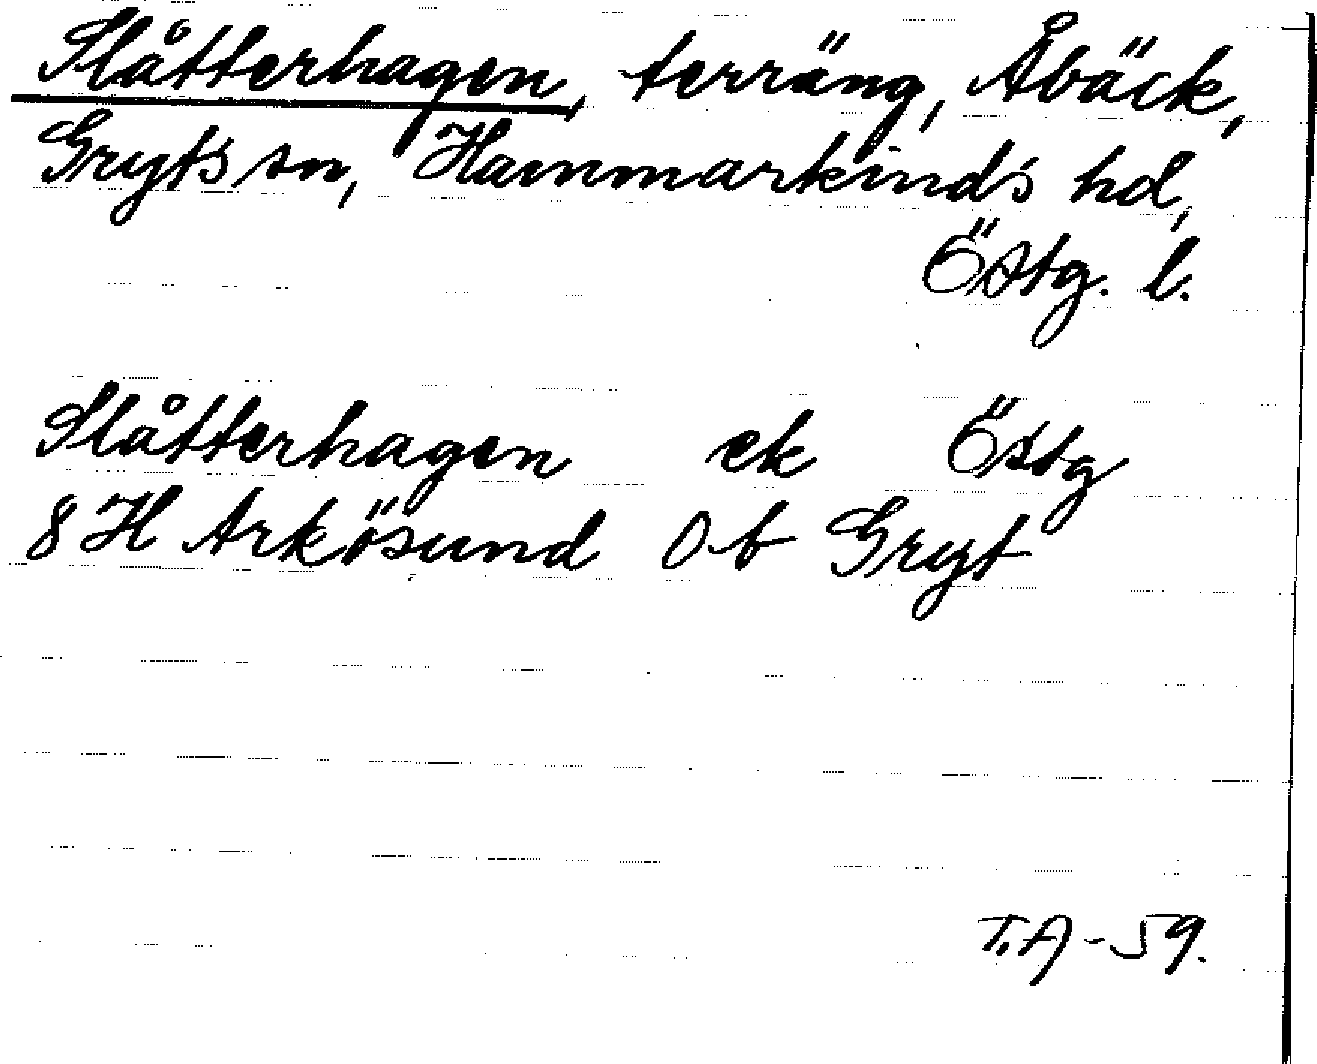 Slåtterhagen, terräng, Åbäck,
Gryts sn, Hammarkinds hd,
Östg. l.
Slåtterhagen ek Östg
8 H Arkösund 0 b Gryt
T.A-59.